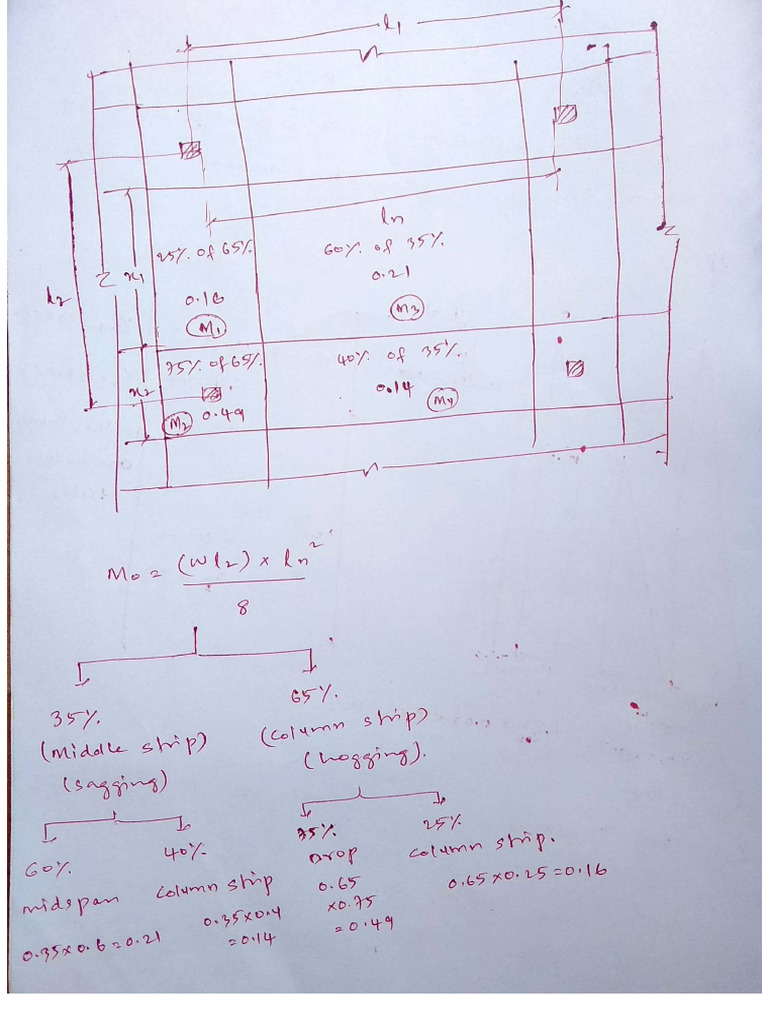 l1
ln
25% of 65%
60% of 35%
0.21
l2
x1
0.16
M1
M3
75% of 65%
40% of 35%
x2
0.14
M4
0.49
M2
Mo = (Wl2) × ln²
8
35%
65%
(Middle strip)
(Column strip)
(Sagging)
(hogging).
60%
40%
75%
25%
midspan
column strip
Drop
column strip.
0.35×0.6=0.21
0.35×0.4
=0.14
0.65
×0.75
=0.49
0.65×0.25=0.16